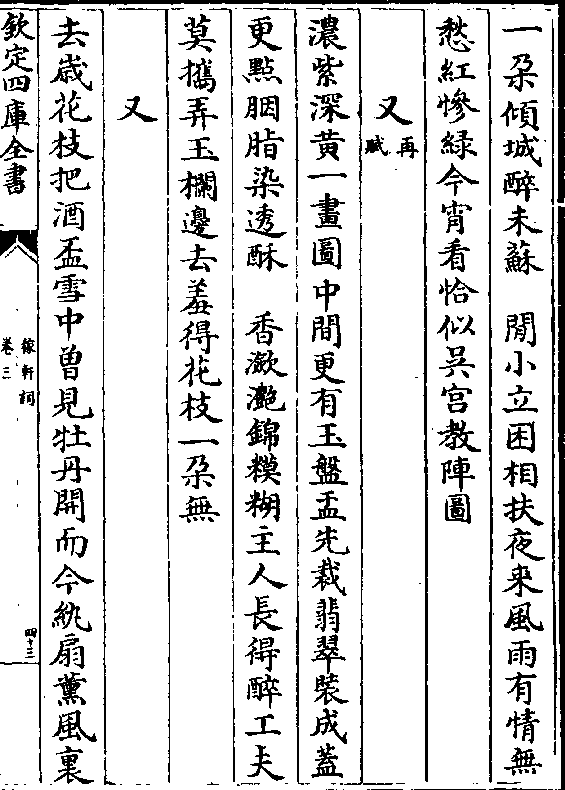 一朶傾城醉未蘇　閒小立困相扶夜来風雨有情無
愁紅慘緑今宵看恰似吳宫教陣圖
又再賦
濃紫深黄一畫圖中間更有玉盤盂先裁翡翠裝成蓋
更點胭脂染透酥　香瀲灔錦糢糊主人長得醉工夫
莫攜弄玉欄邊去羞得花枝一朶無
又
去歲花枝把酒盃雪中曾見牡丹開而今紈扇薰風裏
欽定四庫全書
稼軒詞
卷三
四十三